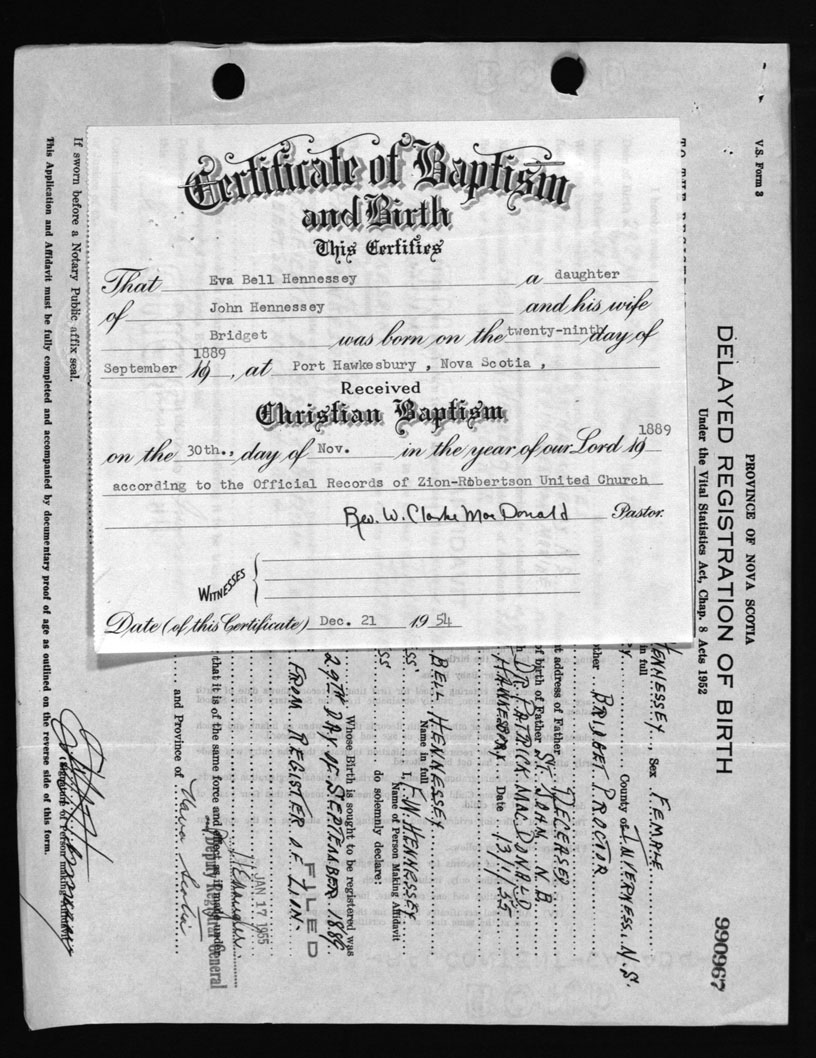 Certificate of Baptism
and Birth
This Certifies
That Eva Bell Hennessey a daughter
of John Hennessey and his wife
Bridget was born on the twenty-ninth day of
September 1889 19 , at Port Hawkesbury , Nova Scotia ,
Received
Christian Baptism
on the 30th., day of Nov. in the year of our Lord 19 1889
according to the Official Records of Zion-Robertson United Church
Rev. W. Clarke MacDonald Pastor.
WITNESSES
Date (of this Certificate) Dec. 21 19 54
V.S. Form 3
PROVINCE OF NOVA SCOTIA
DELAYED REGISTRATION OF BIRTH
990967
Under the Vital Statistics Act, Chap. 8 Acts 1952
TO THE
HENNESSEY Sex FEMALE
in full
County of INVERNESS, N.S.
BRIDGET PROCTOR
address of Father DECEASED
of birth of Father ST. JOHN N.B.
DR. PATRICK MACDONALD
HAWKESBURY Date 13/1/55
BELL HENNESSEY
Name in full
I, E.W. HENNESSEY
Name of Person Making Affidavit
do solemnly declare:
Whose Birth is sought to be registered was
29TH DAY OF SEPTEMBER 1889
FROM REGISTER OF ZION-
FILED
JAN 17 1955
that it is of the same force and effect as if made under
Deputy Registrar General
and Province of Nova Scotia
(Signature of Person making Affidavit)
If sworn before a Notary Public affix seal.
This Application and Affidavit must be fully completed and accompanied by documentary proof of age as outlined on the reverse side of this form.